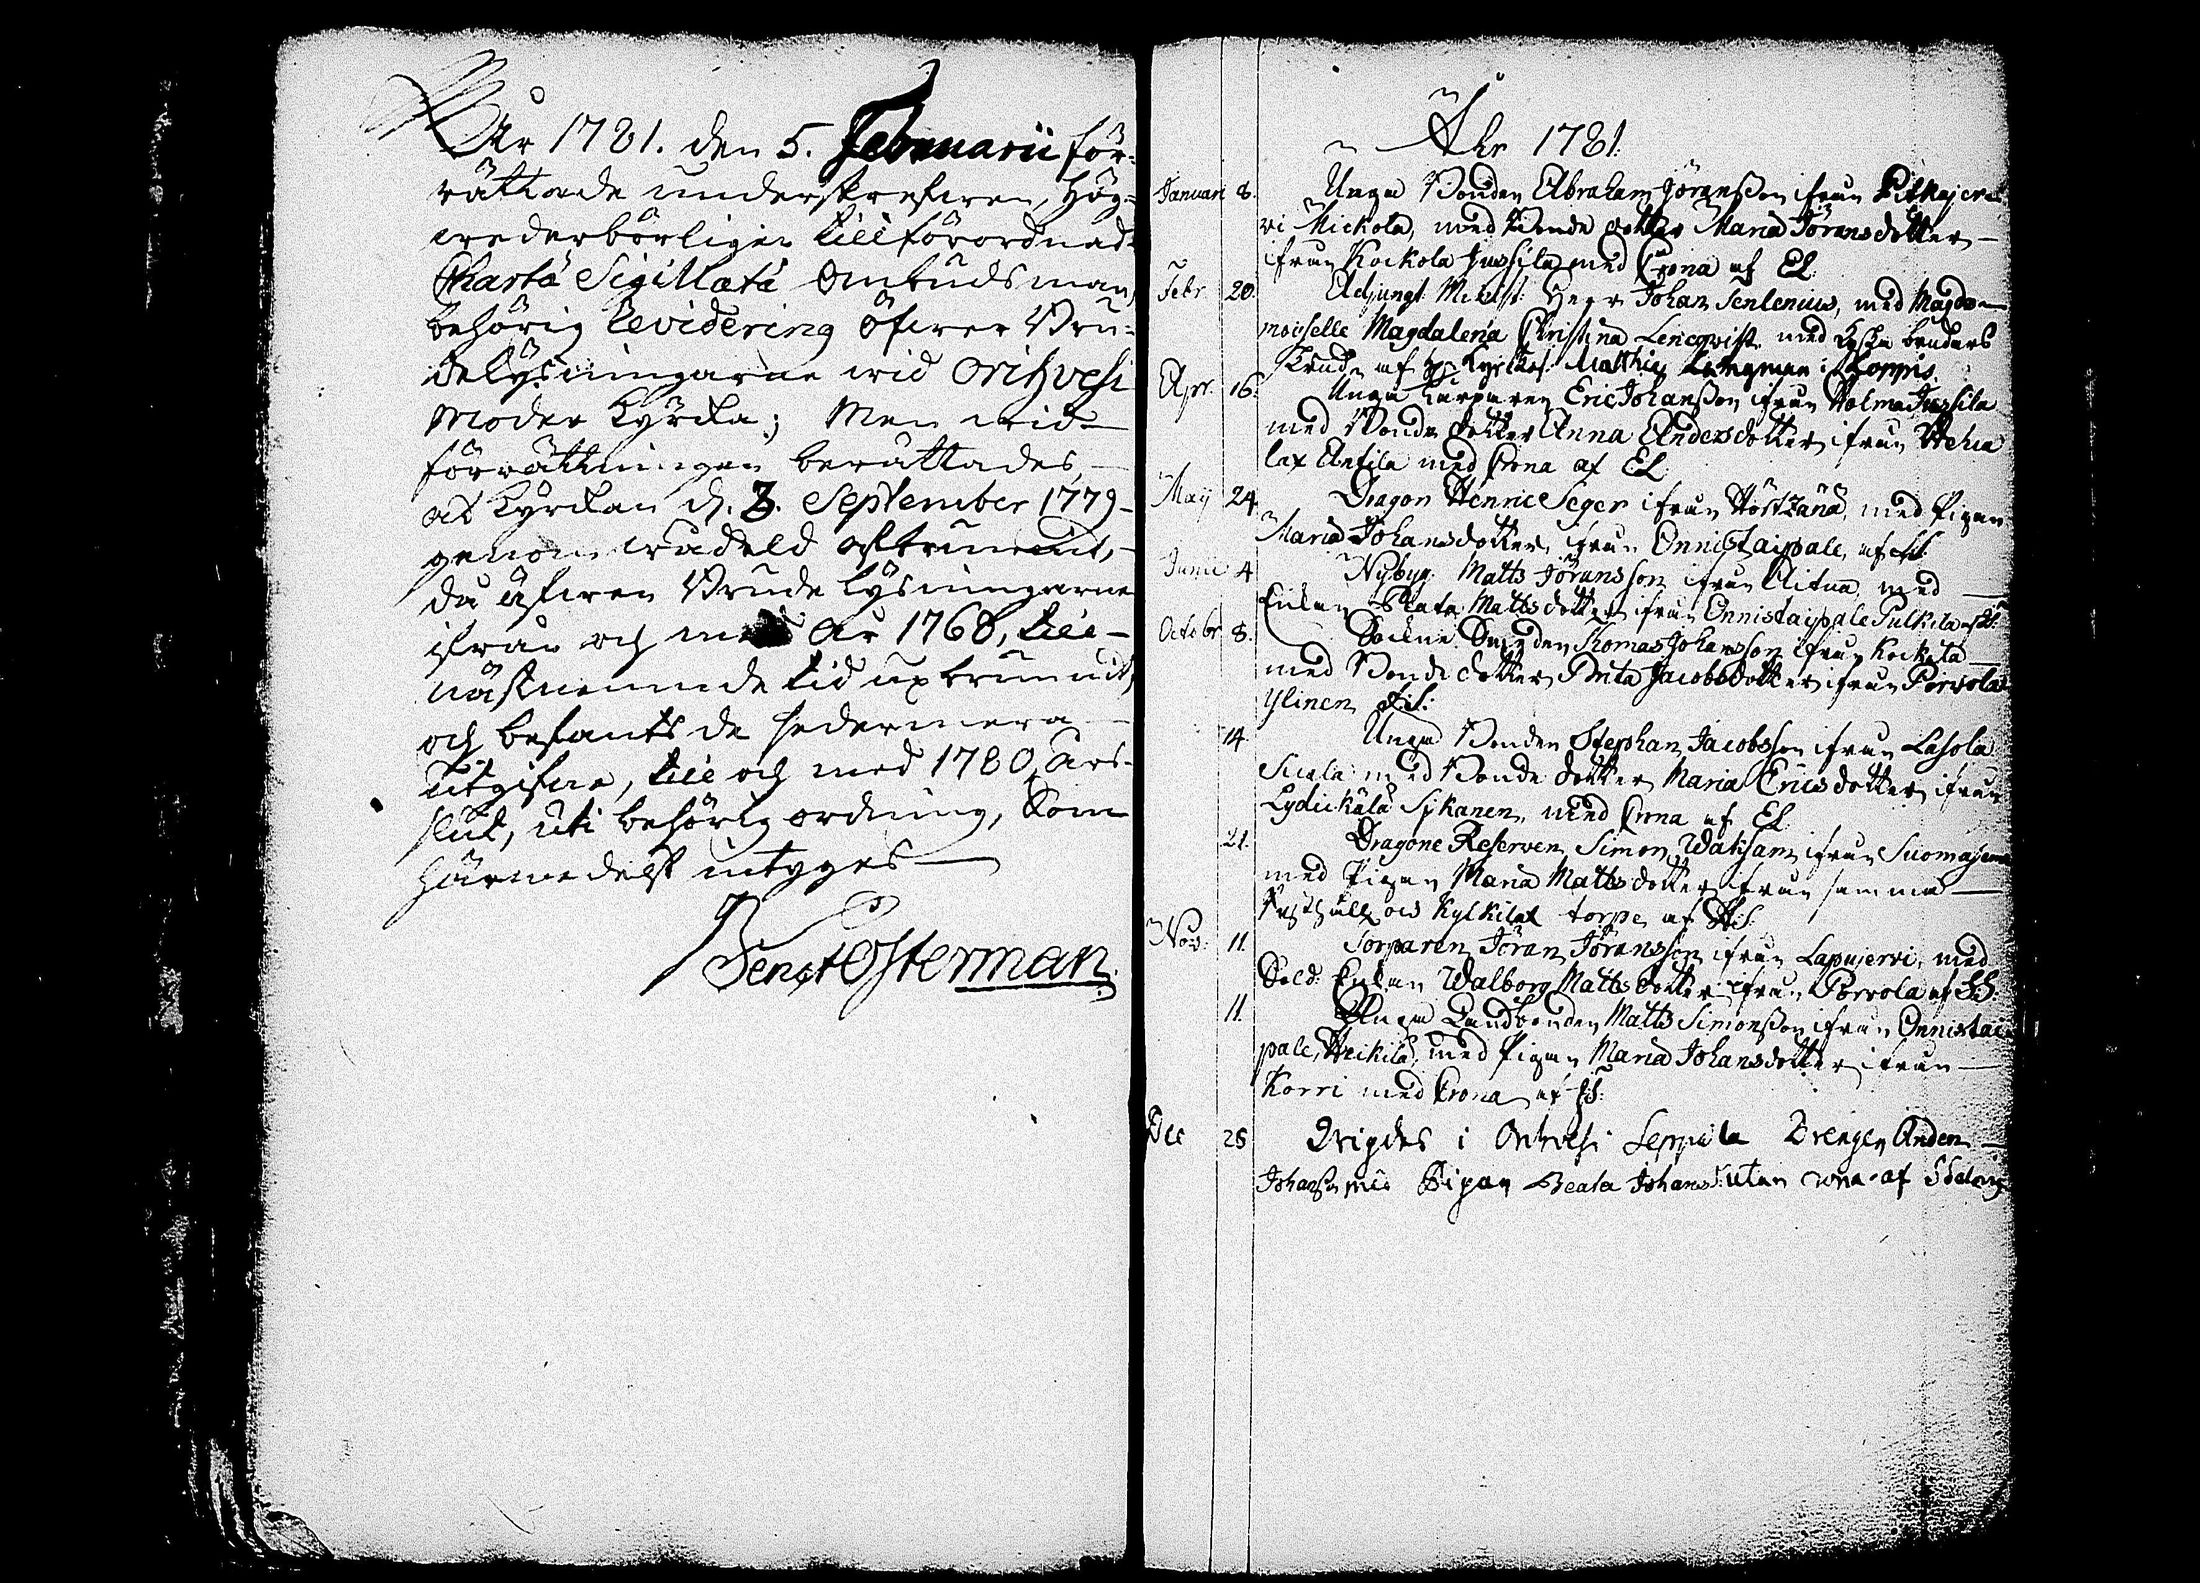 År 1781. den 5. Februarii för-
rättade underskrefwen, Hög-
wederbörligen till förordnad
Chartæ Sigillatæ Ombudsman,
behörig Revidering öfwer Bru-
delysningarne wid Orihvesi
Moder Kyrka; Men wid
förrättningen berättades,
at Kyrkan d. 3. September 1779
genom wådeld afbrunnit,
då äfwen Brudelysningarne
ifrån och med År 1768, till
nästnemnde tid upbrunnit,
och befants de sedermera
utgifne, till och med 1780 Års
slut, uti behörig ordning, Som
härmedelst intyges
Bengt Österman
Åhr 1781.
Januari 8. Unga Bonden Abraham Jöransson ifrån Pitkajer
vi Mickola, med Bonde dotter Maria Jöransdotter
ifrån Kockola Jussila med Crona af El.
Febr. 20. Adjungt. Minist. Herr Johan Senlenius, med Mad
moiselle Magdalena Christina Lencqvist, med
af Matthie Langman i Koppis.
Apr. 16. Unga Torparen Eric Johansson ifrån Holma Jussila
med Bonde dotter Anna Andersdotter ifrån Weha
lax Antila med Crona af El.
Maij 24. Dragon Henric Seger ifrån Höstzänä, med Pigan
Maria Johansdotter, ifrån Onnistaipale, af
Junii 4 Nybyg. Matts Jöransson ifrån Aitua, med
Enkan Beata Mattsdotter ifrån Onnistaipale Pulkila
Octobr. 8. Sockne Smeden Thomas Johansson ifrån Kockola
med Bonde dotter Brita Jacobsdotter ifrån Porvola
Ylinen
14. Unga Bonden Stephan Jacobsson ifrån Lasola
med Bonde dotter Maria Ericsdotter ifrån
Lydickälä Sikanen, med Crona af El.
21. Dragone Reserven Simon Waksam ifrån Suomasema
med Pigan Maria Mattsdotter ifrån samma
Kylkilax torpe, af
Nov. 11. Torparen Jöran Jöransson ifrån Lapujervi, med
Sold: Enkan Walborg Mattsdotter ifrån Porvola af
11. Unga Landbonden Matts Simonsson ifrån Onnistai
pale, Heikilä, med Pigan Maria Johansdotter ifrån
Korri med Crona af
Dec 26 Wigdes i Orihvesi Seppälä Drengen Anders
Johansson med Pigan Beata Johansd: utan crona af